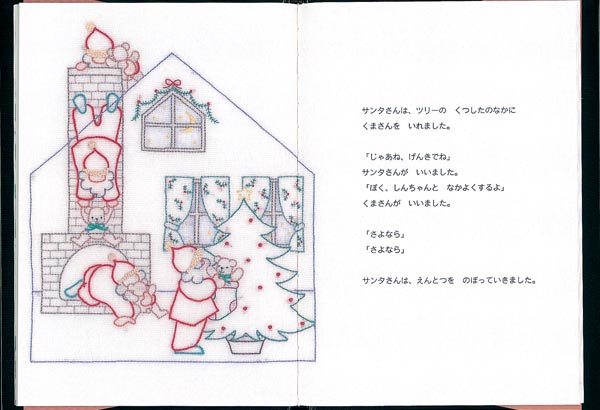 サンタさんは、ツリーの　くつしたのなかに
くまさんを　いれました。
「じゃあね、げんきでね」
サンタさんが　いいました。
「ぼく、しんちゃんと　なかよくするよ」
くまさんが　いいました。
「さよなら」
「さよなら」
サンタさんは、えんとつを　のぼっていきました。